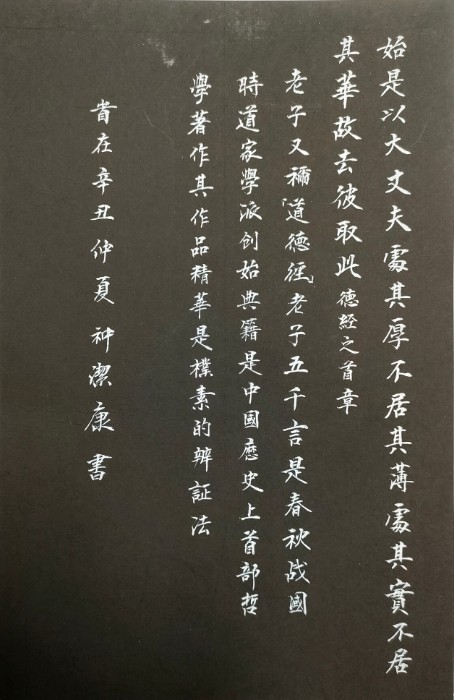 始是以大丈夫處其厚不居其薄處其實不居
其華故去彼取此德經之首章
老子又稱「道德經」老子五千言是春秋战國
時道家學派创始典籍是中國歷史上首部哲
學著作其作品精華是樸素的辨証法
旹在辛丑仲夏神潔康書